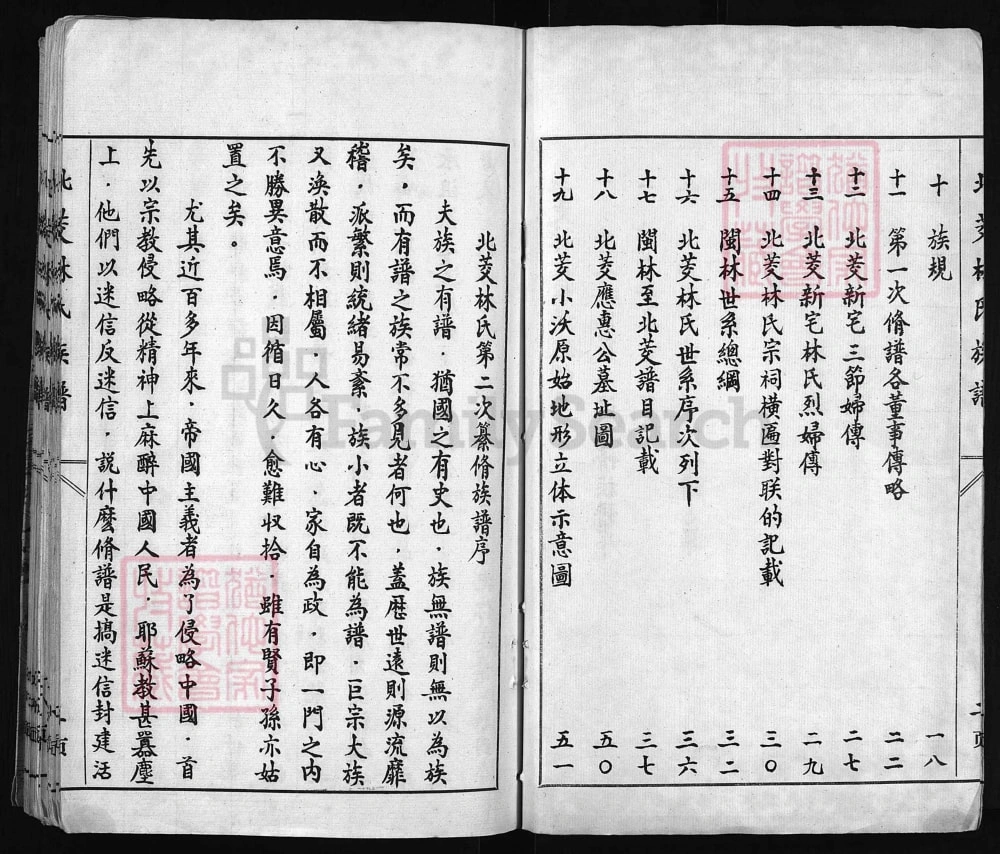 北茭林氏族譜
二頁
十 族規 一八
十一 第一次脩譜各董事傳略 二二
十二 北茭新宅三節婦傳 二七
十三 北茭新宅林氏烈婦傳 二九
十四 北茭林氏宗祠橫匾對联的記載 三〇
十五 閩林世系總綱 三二
十六 北茭林氏世系序次列下 三六
十七 閩林至北茭譜目記載 三七
十八 北茭應惠公墓址圖 五〇
十九 北茭小沃原始地形立体示意圖 五一
北茭林氏第二次纂脩族譜序
夫族之有譜．猶國之有史也．族無譜則無以為族
矣．而有譜之族常不多見者何也．蓋歷世遠則源流靡
稽．派繁則統緒易紊．族小者既不能為譜．巨宗大族
又渙散而不相屬．人各有心．家自為政．即一門之內
不勝異意焉．因循日久．愈難収拾．雖有賢子孫亦姑
置之矣。
尤其近百多年來．帝國主義者為了侵略中國．首
先以宗教侵略從精神上麻醉中國人民．耶穌教甚囂塵
上．他們以迷信反迷信．說什麼脩譜是搞迷信封建活
北茭林氏族譜
頁
FamilySearch